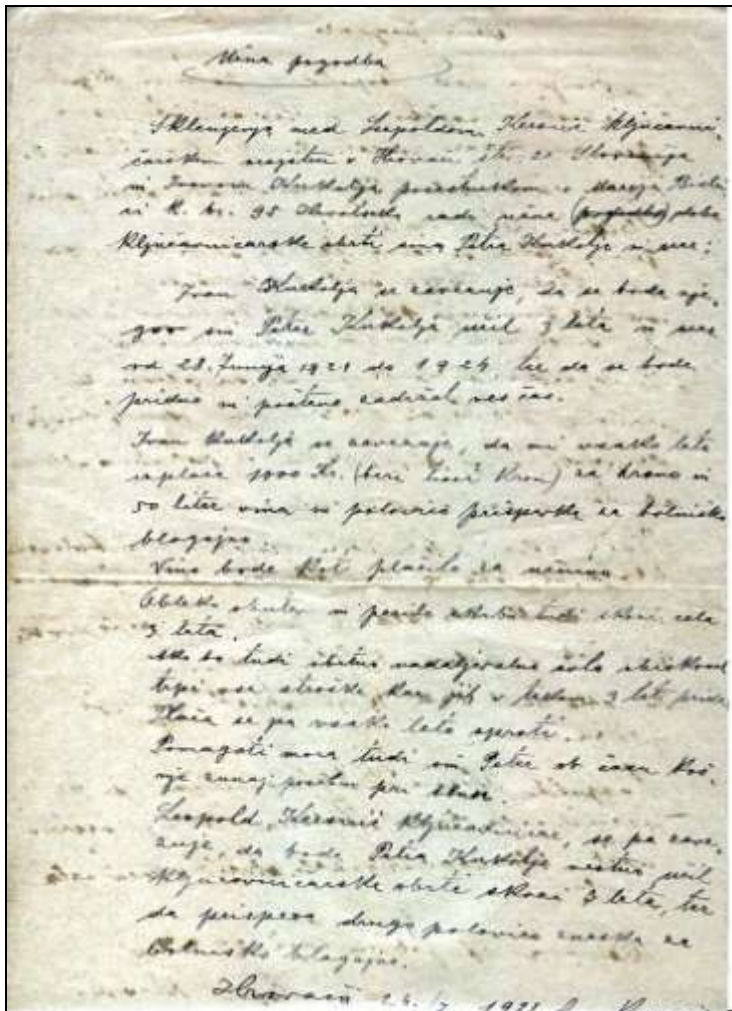 Učna pogodba
Sklenjena med Leopoldom Keršič ključavni
čarskim v Slovenija
in Ivanom Kukolja posestnikom
št. 95 radi učne (pogodbe) dobe
ključavničarske obrti sina Petra Kukolje in ser:
Ivan Kukolja se zavezuje, da se bode nje-
gov sin Peter Kukolja učil 3 leta in ser
od 28. Junija 1921 do 1924 ter da se bode
pridno in pošteno zadržal ves čas.
Ivan Kukolja se zavezuje, da mi vsako leto
vplača 1000 Kr. (beri tisoč Kron) za hrano in
50 liter vina in polovico prispevka za bolniško
blagajno.
Vino bode kot plačilo za učnino.
Obleko obutev in perilo tudi skozi cela
3 leta.
Ako bo tudi obrtno nadaljevalno šolo obiskoval
trpi vse stroške kar jih v teku 3 let pride
Plača se pa vsako leto sproti.
Pomagati mora tudi sin Peter ob času koš-
nje pri
Leopold Keršič ključavničar, se pa zave-
zuje, da bode Petra Kukolje učil
ključavničarske obrti skozi 3 leta, ter
da prispeva drugo polovico zneska za
Bolniško blagajno.
1921